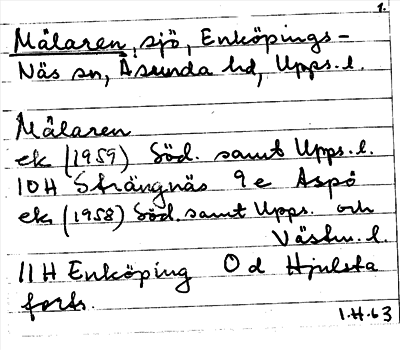 1.
Mälaren, sjö, Enköpings-
Näs sn, Åsunda hd, Upps. l.
Mälaren
ek (1959) Söd. samt Upps. l.
10H Strängnäs 9e Aspö
ek (1958) Söd. samt Upps. och
Västm. l.
11H Enköping 0d Hjulsta
forts.
1.H.63